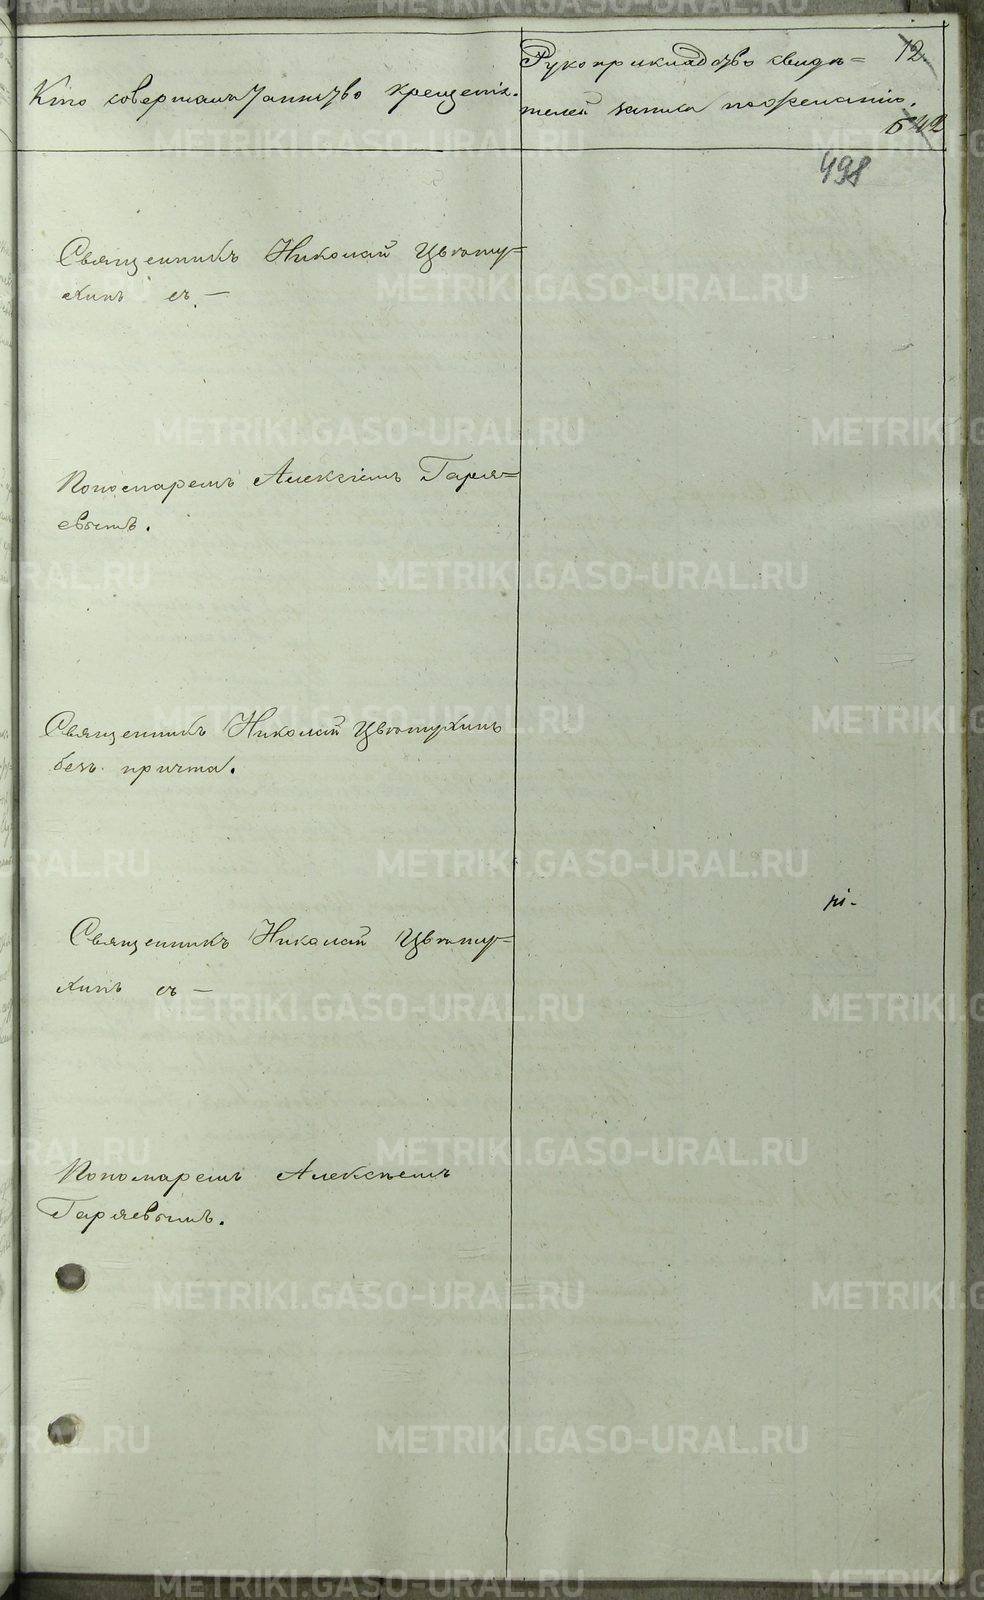 Кто совершалъ таинство крещенія.
Рукоприкладство свидѣ=
телей записи по желанію.
12
542
498
Священникъ Николай Цвѣту=
хинъ съ —
Пономаремъ Алексіемъ Гаря=
евымъ.
Священникъ Николай Цвѣтухинъ
безъ причта.
Священникъ Николай Цвѣту=
хинъ съ —
Пономаремъ Алексѣемъ
Гаряевымъ.
METRIKI.GASO-URAL.RU